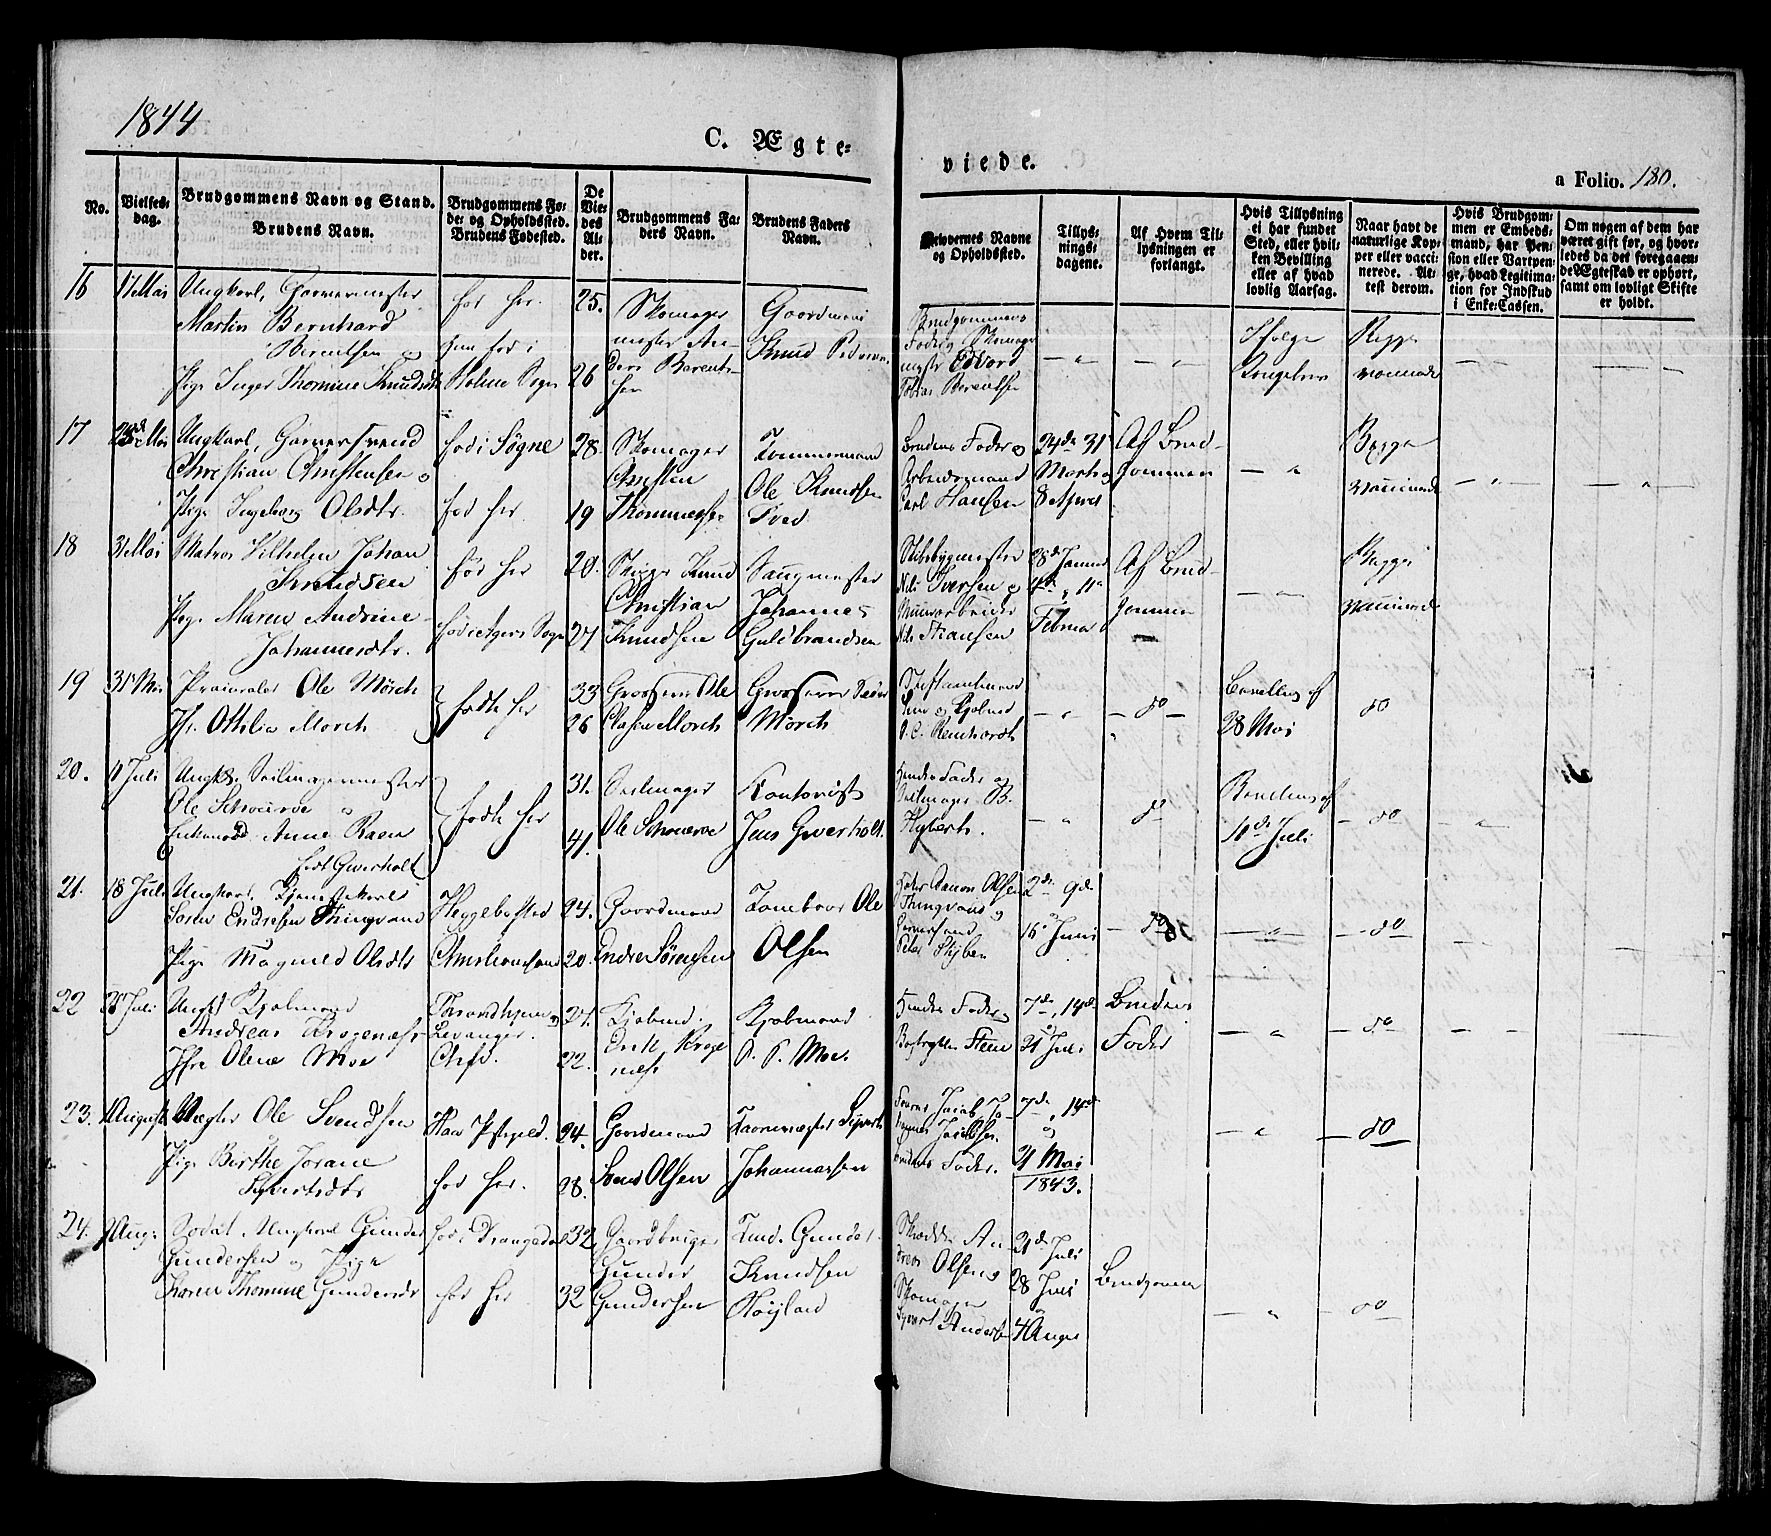 1844
C. Ægte-
viede.
a Folio. 180.
No.
Vielses-
dag.
Brudgommens Navn og Stand.
Brudens Navn.
Brudgommens Fø-
de- og Opholdssted.
Brudens Fødested.
De
Vie-
des Al-
der.
Brudgommens Fa-
ders Navn.
Brudens Faders
Navn.
Forlovernes Navne
og Opholdssted.
Tillys-
nings-
dagene.
Af Hvem Til-
lysningen er
forlangt.
Hvis Tillysning
ei har fundet
Sted, eller hvil-
ken Bevilling
eller af hvad
lovlig Aarsag.
Naar havt de
naturlige Kop-
per eller vacci-
nerede. At-
test derom.
Hvis Brudgom-
men er Embeds-
mand, har Pen-
sion eller Vartpen-
ge, hvad Legitima-
tion for Indskud
i Enke-Cassen.
Om nogen af dem har
været gift før, og hvor-
ledes da det foregaaen-
de Ægteskab er ophørt,
samt om lovligt Skifte
er holdt.
16
17 Mai
Ungkarl, Garvermester
Martin Bernhard
Berentsen og
Pige Inger Thomine Knudsdtr
fød her.
hun fød i
Holme Sogn
25.
26
Skomager
mester An-
ders Berent-
sen
Gaardmand
Knud Pedersen
Brudgommens
Fader og Skomager
mester Edvard
Tobias Berentsen
Begge
vaccinerede
17
Mai
Ungkarl, Garversvend
Christian Christensen og
Pige Ingeborg Olsdtr.
fød i Søgne
fød her.
28.
19
Skomager
Christen
Thommesen
Tømmermand
Ole Knudsen
Tved
Brudens Fader og
Arbeidsmand
Carl Hansen
24de 31
Marts og
8 April
Af Brud-
gommen
Begge
vaccinerede
18
31 Mai
Matros Vilhelm Johan
Knudsen
Pige Maren Andrine
Johannesdtr.
fød her
fød i Agers Sogn
20.
27
Skipper Knud
Christian
Knudsen
Saugmester
Johannes
Guldbrandsen
Skibsbygmester
Nils Iversen og
Nils Hansen
28de Januar
4de, 11te
Februar
Af Brud-
gommen
Begge
vaccinerede
19
31 Mai
Ole Mørch
Jf. Othilia Mørch
fødte her
33
26
Grosserer Ole
Clasen Mørch
Grosserer
Mørch
O. C. Reinhardt
do
Bevilling af
28 Mai
do
20.
11 Juli
Ungk. Seilmagermester
Ole Schouwe og
Anne
født Gverholt
fødte her
31.
41.
Seilmager
Ole Schouwe
Kontorist
Jens Gverholt.
Hendes Fader og
Seilmager B.
Hybert.
do
Bevilling af
10de Juli
do
21.
18 Juli
Ungkarl, Tjenestekarl
Søren Endresen Thingvand
Pige Magnild Olsdtr
Heggebosted
Christiansand
24.
20.
Gaardmand
Endre Sørensen
Ole
Olsen
Aanon Olsen
Thingvand og
Peter Stiben
2de 9de
16 Juni
do
do
22
Juli
Ungk. Kjøbmand
Andreas Krogenæs
Jfr. Olene Moe
Throndhjem
Levanger.
Chrsd.
27.
22.
Kjøbmd.
Erik Kroge
næs
Kjøbmand
P. P. Moe.
Hendes Fader og
Steen
7de, 14de
21 Juli
Brudens
Fader
do
23.
August
Vægter Ole Svendsen
Pige Birthe Jorane
Syvertsdtr
fød her.
24.
28.
Gaardmand
Svend Olsen
Taarnvægter Syvert
Johannessen
Jacob
Jacobsen
Brudens Fader.
7de, 14de
og
21 Mai
1843.
do
24.
Aug.
Soldat, Ungkarl Gunder
Gundersen og Pige
Karen Thomine Gundersdtr
fød i Drangedal
fød her
32
32
Gaardbruger
Gunder
Gundersen
Gunder
Knudsen
Høyland
Skrædder An-
dreas Olsen og
Skomager
Syvert Andersen
21de Juli
28 Juli
4 August
Brudgommen
do